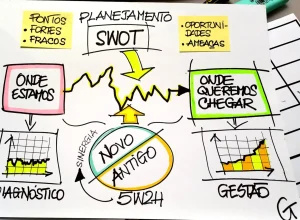 PLANEJAMENTO
• PONTOS
• FORTES
• FRACOS
SWOT
• OPORTUNI-
DADES
• AMEAÇAS
ONDE
ESTAMOS
ONDE
QUEREMOS
CHEGAR
SINERGIA
NOVO
ANTIGO
5W2H
DIAGNÓSTICO
GESTÃO